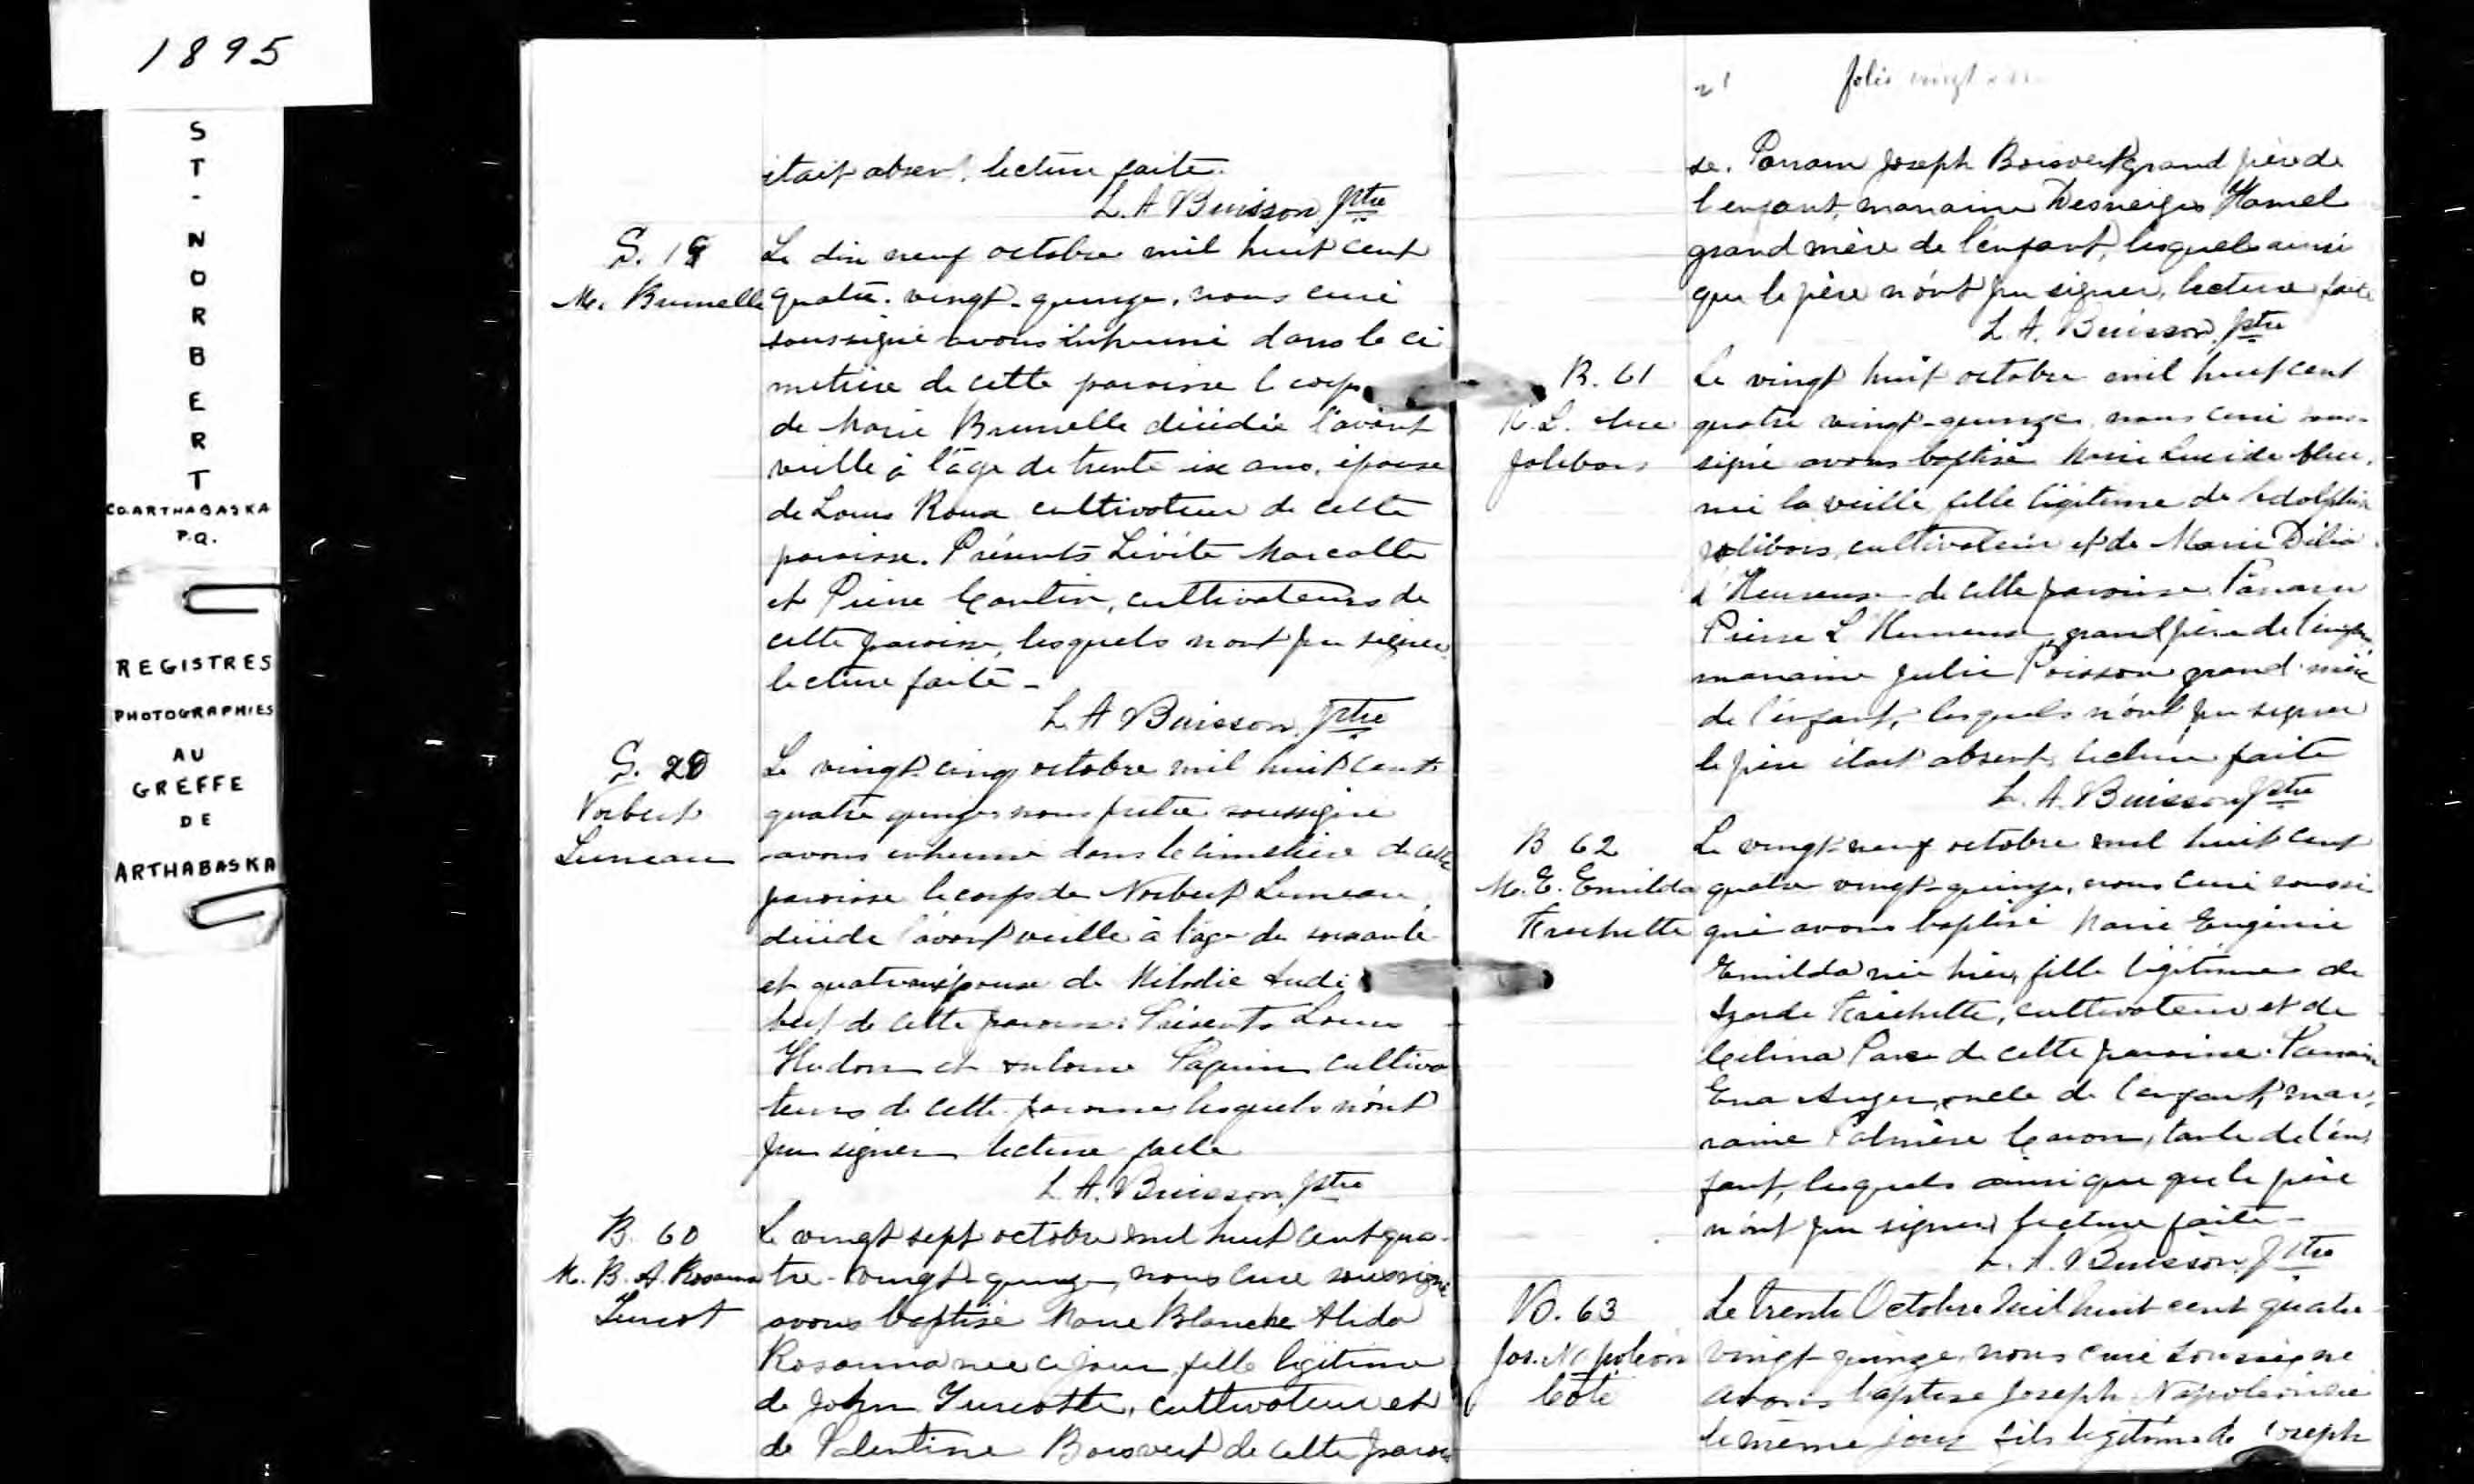 1895
ST-NORBERT
CO. ARTHABASKA
P.Q.
REGISTRES
PHOTOGRAPHIES
AU
GREFFE
DE
ARTHABASKA
était absent. lecture faite.
L. A Buisson Ptre
S. 19
M. Brunelle
Le dix neuf octobre mil huit cent
quatre-vingt-quinze, nous curé
soussigné avons inhumé dans le ci
metière de cette paroisse le corps
de Marie Brunelle décédée l'avant
veille à l'âge de trente six ans, épouse
de Louis Roux cultivateur de cette
paroisse. Présents Lévite Marcotte
et Pierre Cantin, cultivateurs de
cette paroisse, lesquels n'ont pu signer
lecture faite -
L A Buisson Ptre
S. 20
Norbert
Luneau
Le vingt cinq octobre mil huit cent
quatre quinze nous prêtre soussigné
avons inhumé dans le cimetière de cette
paroisse le corps de Norbert Luneau,
décédé l'avant veille à l'âge de soixante
et quatre époux de Mélodie Audi
bert de cette paroisse. Présents Louis
Hudon et Paquin cultiva
teurs de cette paroisse lesquels n'ont
pu signer lecture faite
L. A. Buisson, Ptre
B. 60
M. B. A. Rosanna
Turcot
Le vingt sept octobre mil huit cent qua-
tre-vingt-quinze, nous curé soussigné
avons baptisé Marie Blanche Alida
Rosanna née ce jour fille légitime
de John Turcotte, cultivateur et
de Valentine Boisvert de cette parois
21 folio vingt
se. Parrain Joseph Boisvert grand père de
l'enfant, marraine Desneiges Hamel
grand mère de l'enfant, lesquels ainsi
que le père n'ont pu signer, lecture faite
L. A. Buisson, Ptre
B. 61
M. L.
Jolibois
Le vingt huit octobre mil huit cent
quatre vingt-quinze, nous curé sous-
signé avons baptisé Marie
née la veille fille légitime de Adolphe
Jolibois, cultivateur et de Marie Délia
L'Heureux de cette paroisse Parrain
Pierre L'Heureux grand père de l'enfant
marraine Julie Poisson grand-mère
de l'enfant, lesquels n'ont pu signer
le père était absent, lecture faite
L. A. Buisson Ptre
B 62
M. E. Emilda
Frechette
Le vingt-neuf octobre mil huit cent
quatre vingt-quinze, nous curé soussi
gné avons baptisé Marie Eugénie
Emilda née hier, fille légitime de
Frechette, cultivateur et de
Celina Paré de cette paroisse. Parrain
Auger, oncle de l'enfant, mar-
raine Caron, tante de l'en
fant, lesquels ainsi que que le père
n'ont pu signer lecture faite -
L. A. Buisson, Ptre
B. 63
Jos. Napoléon
Côté
Le trente Octobre mil huit cent quatre
vingt-quinze, nous curé soussigné
avons baptisé Joseph Napoléon né
le même jour fils légitime de Joseph